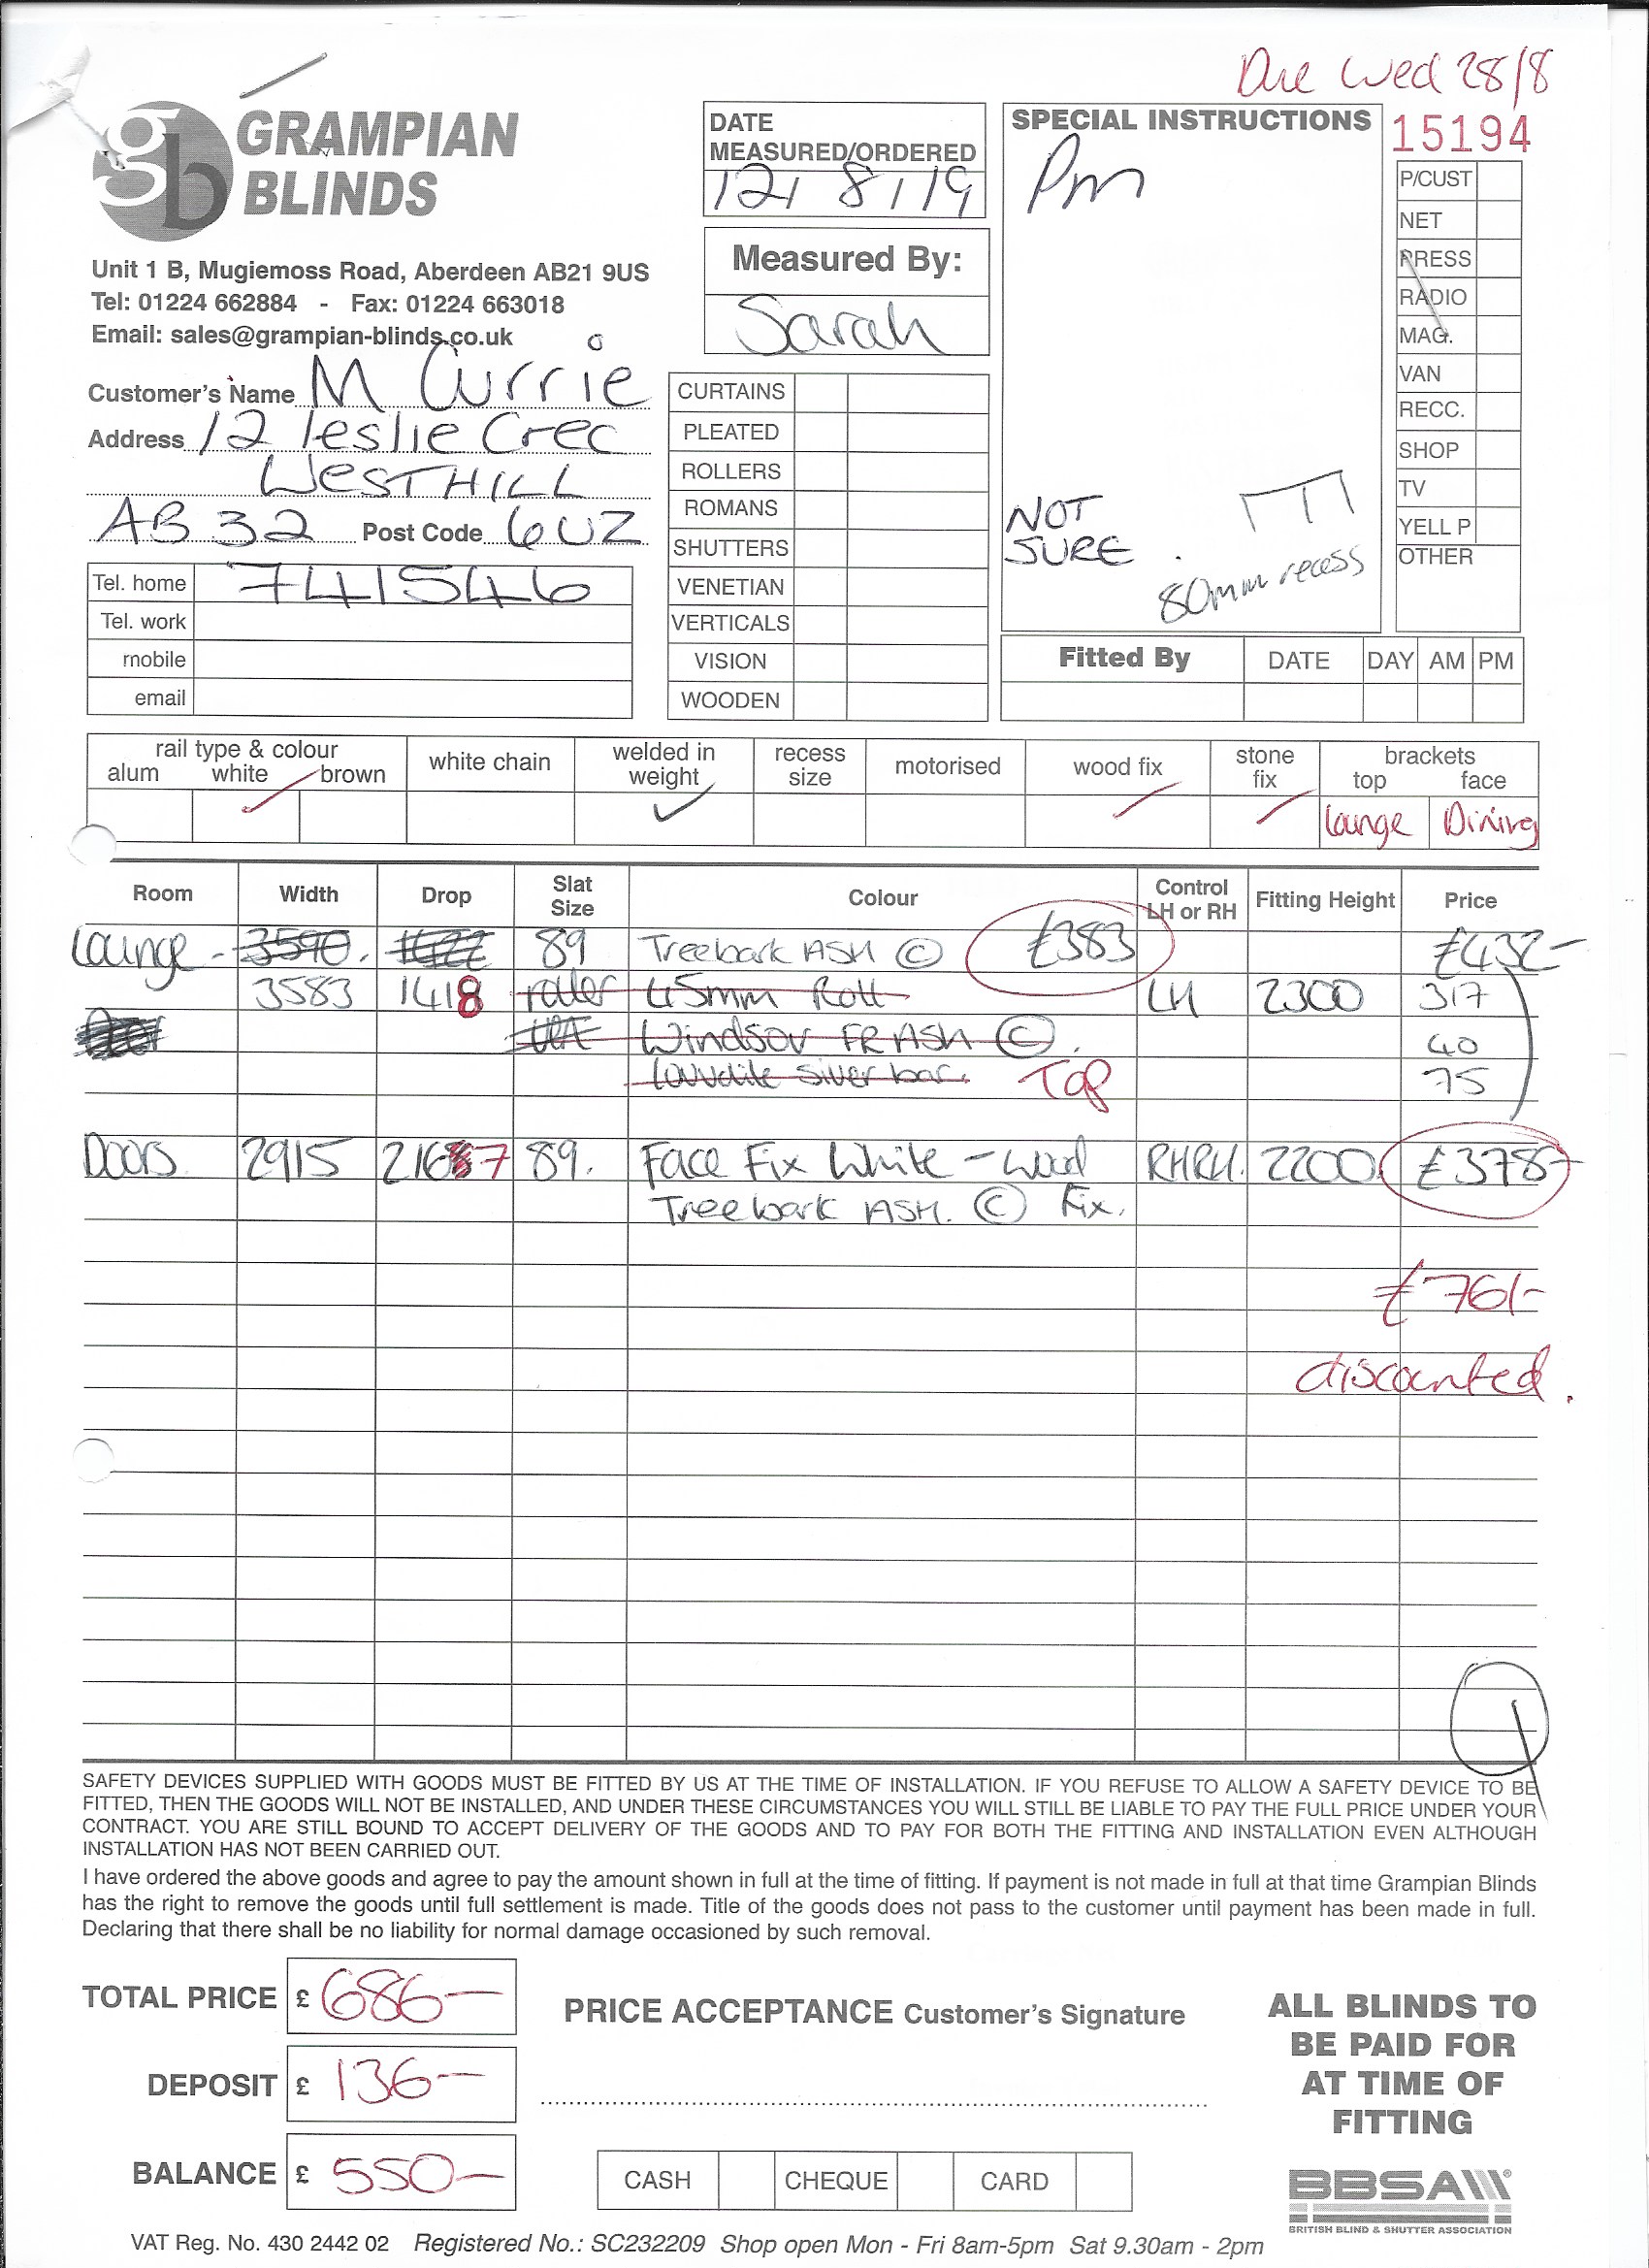 Due Wed 28/8
GRAMPIAN
BLINDS
Unit 1 B, Mugiemoss Road, Aberdeen AB21 9US
Tel: 01224 662884 - Fax: 01224 663018
Email: sales@grampian-blinds.co.uk
Customer's Name M Currie
Address 12 leslie Crec
WESTHILL
AB32 Post Code 6UZ
Tel. home 741546
Tel. work
mobile
email
DATE
MEASURED/ORDERED
12/8/19
Measured By:
Sarah
CURTAINS
PLEATED
ROLLERS
ROMANS
SHUTTERS
VENETIAN
VERTICALS
VISION
WOODEN
SPECIAL INSTRUCTIONS
Pm
NOT
SURE
80mm recess
15194
P/CUST
NET
PRESS
RADIO
MAG.
VAN
RECC.
SHOP
TV
YELL P
OTHER
Fitted By DATE DAY AM PM
rail type & colour
alum white brown
white chain
welded in
weight
recess
size
motorised
wood fix
stone
fix
brackets
top face
Lounge Dining
Room Width Drop Slat Size Colour Control LH or RH Fitting Height Price
Lounge - 3590. 1422 89 Treebark ASH © £383 £432-
3583 1418 roller 45mm Roll LH 2300 317
Windsor FR ASH © 40
silver bar. Top 75
Doors 2915 2167 89. Face Fix White - Wood RHRH. 2200 £378-
Treebark ASH. © Fix.
£761-
discounted.
SAFETY DEVICES SUPPLIED WITH GOODS MUST BE FITTED BY US AT THE TIME OF INSTALLATION. IF YOU REFUSE TO ALLOW A SAFETY DEVICE TO BE
FITTED, THEN THE GOODS WILL NOT BE INSTALLED, AND UNDER THESE CIRCUMSTANCES YOU WILL STILL BE LIABLE TO PAY THE FULL PRICE UNDER YOUR
CONTRACT. YOU ARE STILL BOUND TO ACCEPT DELIVERY OF THE GOODS AND TO PAY FOR BOTH THE FITTING AND INSTALLATION EVEN ALTHOUGH
INSTALLATION HAS NOT BEEN CARRIED OUT.
I have ordered the above goods and agree to pay the amount shown in full at the time of fitting. If payment is not made in full at that time Grampian Blinds
has the right to remove the goods until full settlement is made. Title of the goods does not pass to the customer until payment has been made in full.
Declaring that there shall be no liability for normal damage occasioned by such removal.
TOTAL PRICE £ 686-
DEPOSIT £ 136-
BALANCE £ 550-
PRICE ACCEPTANCE Customer's Signature
CASH CHEQUE CARD
ALL BLINDS TO
BE PAID FOR
AT TIME OF
FITTING
BBSA
BRITISH BLIND & SHUTTER ASSOCIATION
VAT Reg. No. 430 2442 02 Registered No.: SC232209 Shop open Mon - Fri 8am-5pm Sat 9.30am - 2pm